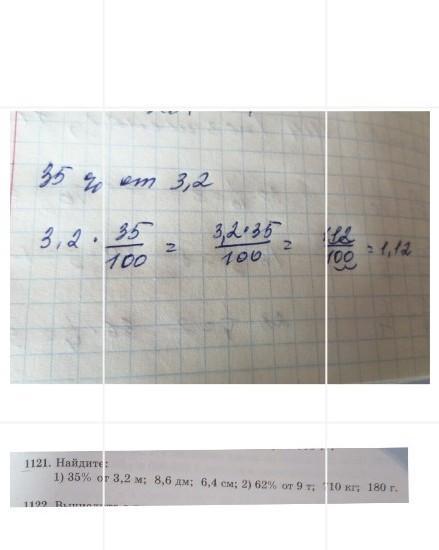 35 % от 3,2
3,2 · 35/100 = 3,2·35/100 = 112/100 = 1,12
1121. Найдите:
1) 35% от 3,2 м; 8,6 дм; 6,4 см; 2) 62% от 9 т; 710 кг; 180 г.
1122.